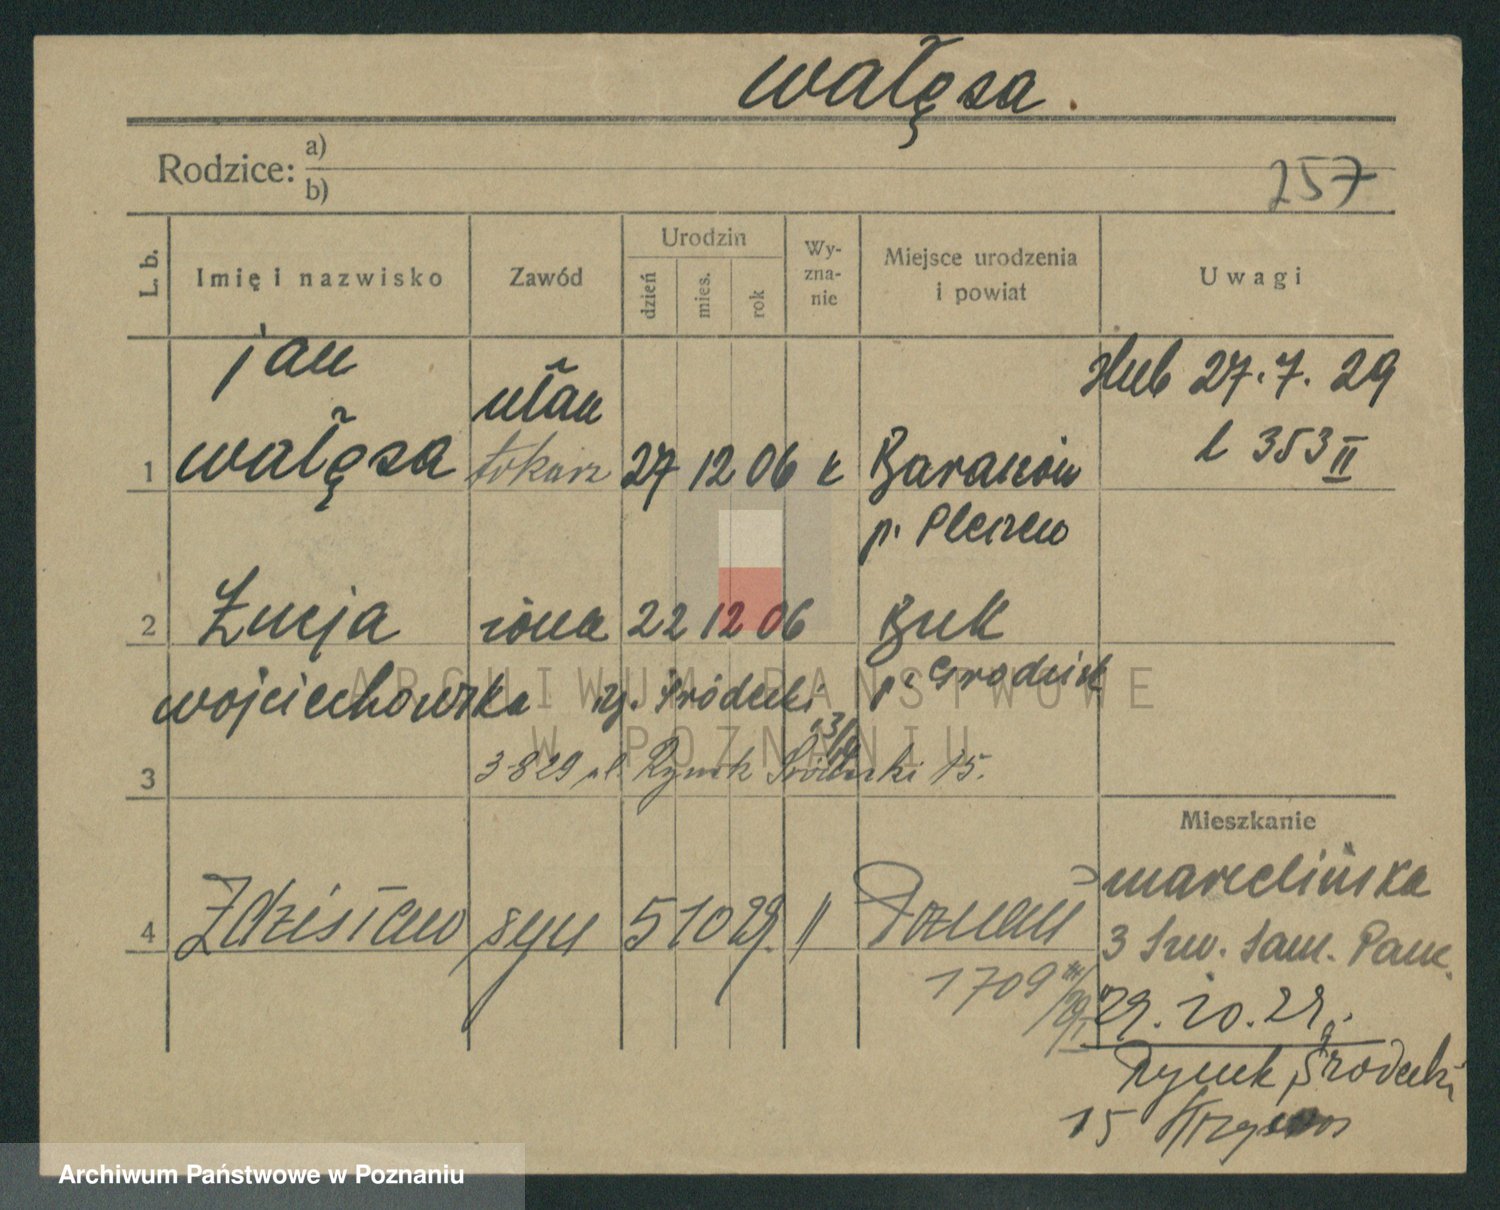 Wałęsa.
Rodzice: a)
b)
257
L. b.
Imię i nazwisko
Zawód
Urodzin
dzień
mies.
rok
Wy-
zna-
nie
Miejsce urodzenia
i powiat
Uwagi
Jan
ułan
ślub 27.7.29
1 Wałęsa tokarz 27 12 06 k
l. 353 II
p. Pleszew
2 Łucja żona 22 12 06 Buk
Wojciechowska
Śródecki
p. Grodzisk
3
3 8 29 ul. Rynek Śródecki 15.
Mieszkanie
Marcelińska
4 Zdzisław syn 5 10 29 " Poznań
3 Szw. Sam. Panc.
1709
29.10.29.
Rynek Środecki
15
ARCHIWUM PAŃSTWOWE
W POZNANIU
Archiwum Państwowe w Poznaniu